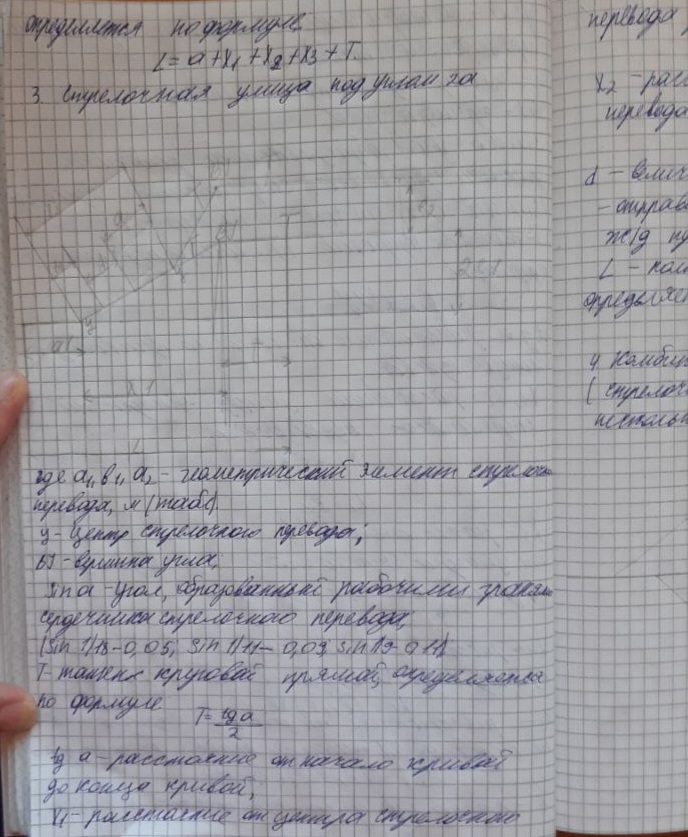 определяется по формуле:
L = a + x1 + x2 + x3 + T.
3. Стрелочная улица под углом 2α
где a1, в1, a2 - геометрический элемент стрелочно
перевода, м (табл).
ц - центр стрелочного перевода;
- вершина угла;
sin α - угол, образованный рабочими гранями
сердечника стрелочного перевода;
(sin 1/18 - 0,05; sin 1/11 - 0,09; sin 1/9 - 0,11)
T - круговой прямой, определяется
по формуле T = tg α / 2
tg α - расстояние от начало кривой
до конца кривой;
x1 - расстояние от центра стрелочного
перевода
x2 - рас
перевода
d - велич
- отправ
ж/д пу
L - пол
определяет
4 Комбин
(стрелоч